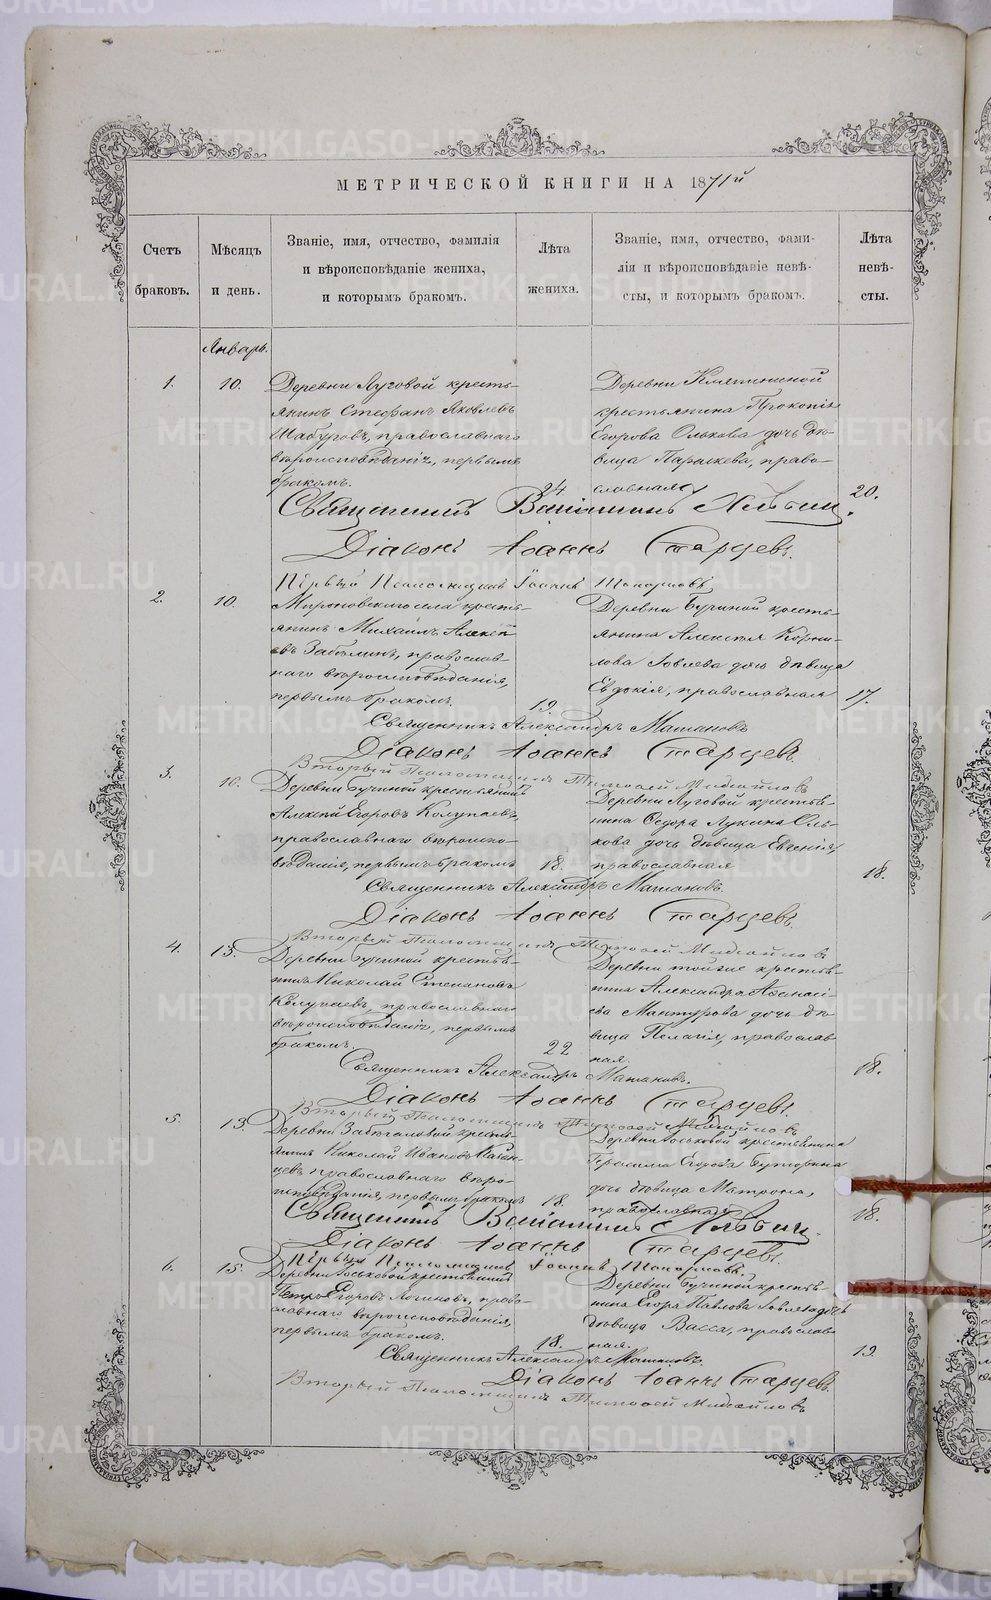 МЕТРИЧЕСКОЙ КНИГИ НА 1871й
Счетъ браковъ.
Мѣсяцъ и день.
Званіе, имя, отчество, фамилія
и вѣроисповѣданіе жениха,
и которымъ бракомъ.
Лѣта жениха.
Званіе, имя, отчество, фами-
лія и вѣроисповѣданіе невѣ-
сты, и которымъ бракомъ.
Лѣта невѣ-
сты.
Январь.
1.
10.
Деревни Луговой кресть-
янинъ Стефанъ Яковлевъ
Шабуровъ, православнаго
вѣроисповѣданія, первымъ
бракомъ.
24
Деревни Кляпининой
крестьянина Прокопія
Егорова Олькова дочь дѣ-
вица Параскева, право-
славная
20.
Священникъ Веніаминъ
Діаконъ Іоаннъ Старцевъ.
Первый Псаломщикъ Іоаннъ Топорковъ.
2.
10.
Мироновскаго села кресть-
янинъ Михаилъ Алексѣ-
евъ Забѣлинъ, православ-
наго вѣроисповѣданія,
первымъ бракомъ.
19.
Деревни Бучиной кресть-
янина Алексѣя Корни-
лова Іовлева дочь дѣвица
Евдокія, православная
17.
Священникъ Александръ Матановъ
Діаконъ Іоаннъ Старцевъ.
Вторый Псаломщикъ Тимоѳей Михайловъ
3.
10.
Деревни Бучиной крестьянинъ
Алексѣй Егоровъ Колупаевъ,
православнаго вѣроиспо-
вѣданія, первымъ бракомъ
18.
Деревни Луговой кресть-
янина Ѳедора Лукина Оль-
кова дочь дѣвица Евгенія,
православная
18.
Священникъ Александръ Матановъ.
Діаконъ Іоаннъ Старцевъ.
Вторый Псаломщикъ Тимоѳей Михайловъ
4.
13.
Деревни Бучиной кресть-
янинъ Николай Степановъ
Колупаевъ, православнаго
вѣроисповѣданія, первымъ
бракомъ.
22
Деревни тойже кресть-
янина Александра Аѳанасі-
ева Мантурова дочь дѣ-
вица Пелагія, православ-
ная.
18.
Священникъ Александръ Матановъ.
Діаконъ Іоаннъ Старцевъ.
Вторый Псаломщикъ Тимоѳей Михайловъ
5.
13.
Деревни кресть-
янинъ Николай Ивановъ
православнаго вѣро-
исповѣданія, первымъ бракомъ
18.
Деревни крестьянина
Герасима Егорова Буторина
дочь дѣвица Матрона,
православная
18.
Священникъ Веніаминъ
Діаконъ Іоаннъ Старцевъ.
Первый Псаломщикъ Іоаннъ Топорковъ.
6.
15.
Деревни крестьянинъ
Петръ Егоровъ Логиновъ, право-
славнаго вѣроисповѣданія,
первымъ бракомъ.
18.
Деревни Бучиной кресть-
янина Егора Павлова Іовлева дочь
дѣвица Васса, православ-
ная.
19.
Священникъ Александръ Матановъ.
Діаконъ Іоаннъ Старцевъ.
Вторый Псаломщикъ Тимоѳей Михайловъ
METRIKI.GASO-URAL.RU